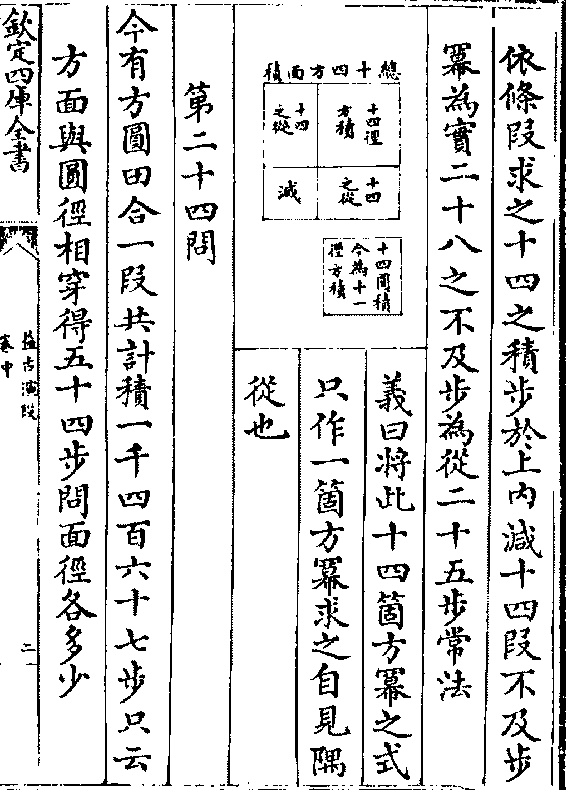 依條段求之十四之積步於上内減十四段不及步
冪為實二十八之不及步為從二十五步常法
總十四方面積
十四徑
方積
十四
之從
十四
之從
減
十四圓積
今為十一
徑方積
義曰將此十四箇方冪之式
只作一箇方冪求之自見隅
從也
第二十四問
今有方圓田合一段共計積一千四百六十七步只云
方面與圓徑相穿得五十四步問面徑各多少
欽定四庫全書
益古演段
卷中
二